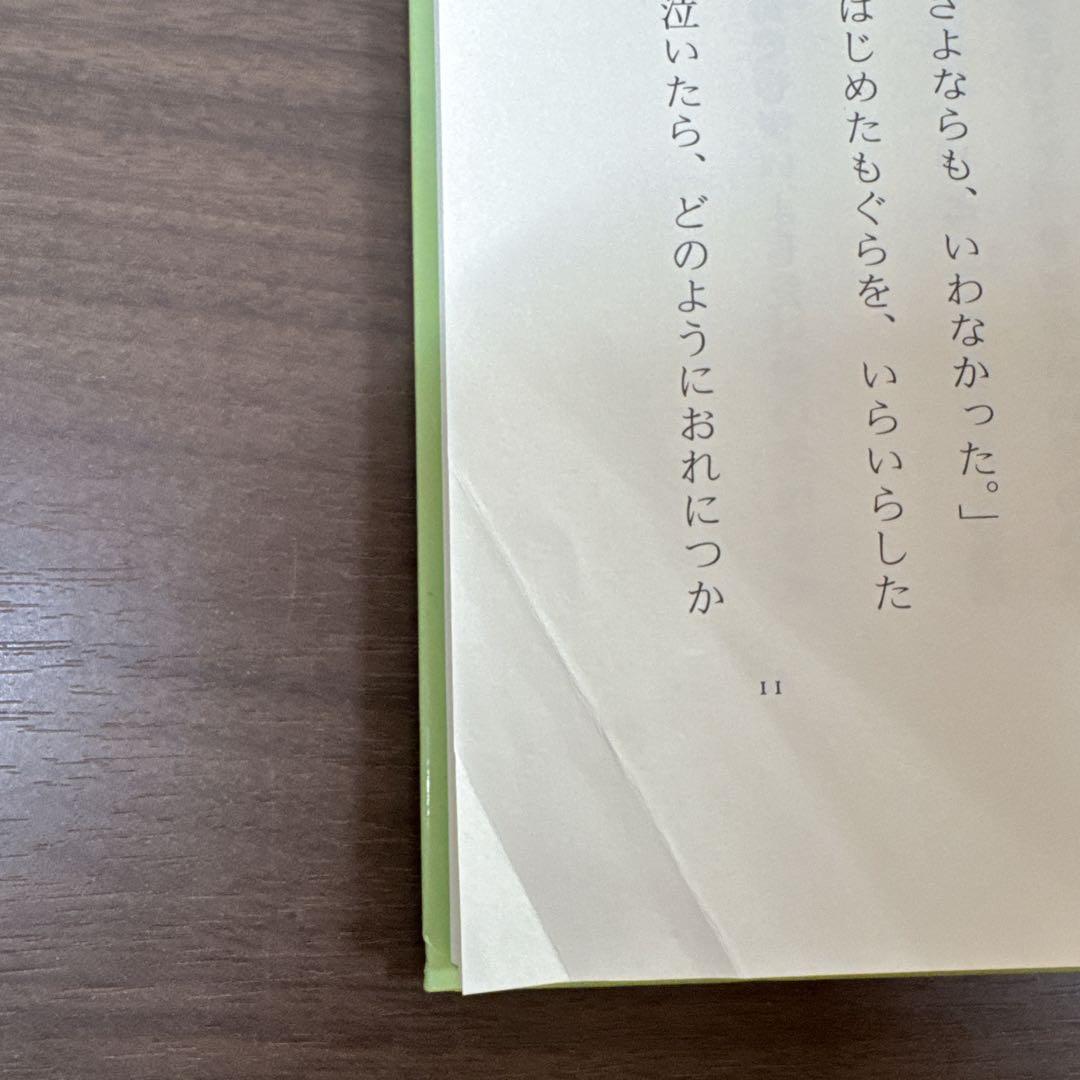 さよならも、いわなかった。」
はじめたもぐらを、いらいらした
泣いたら、どのようにおれにつか
11